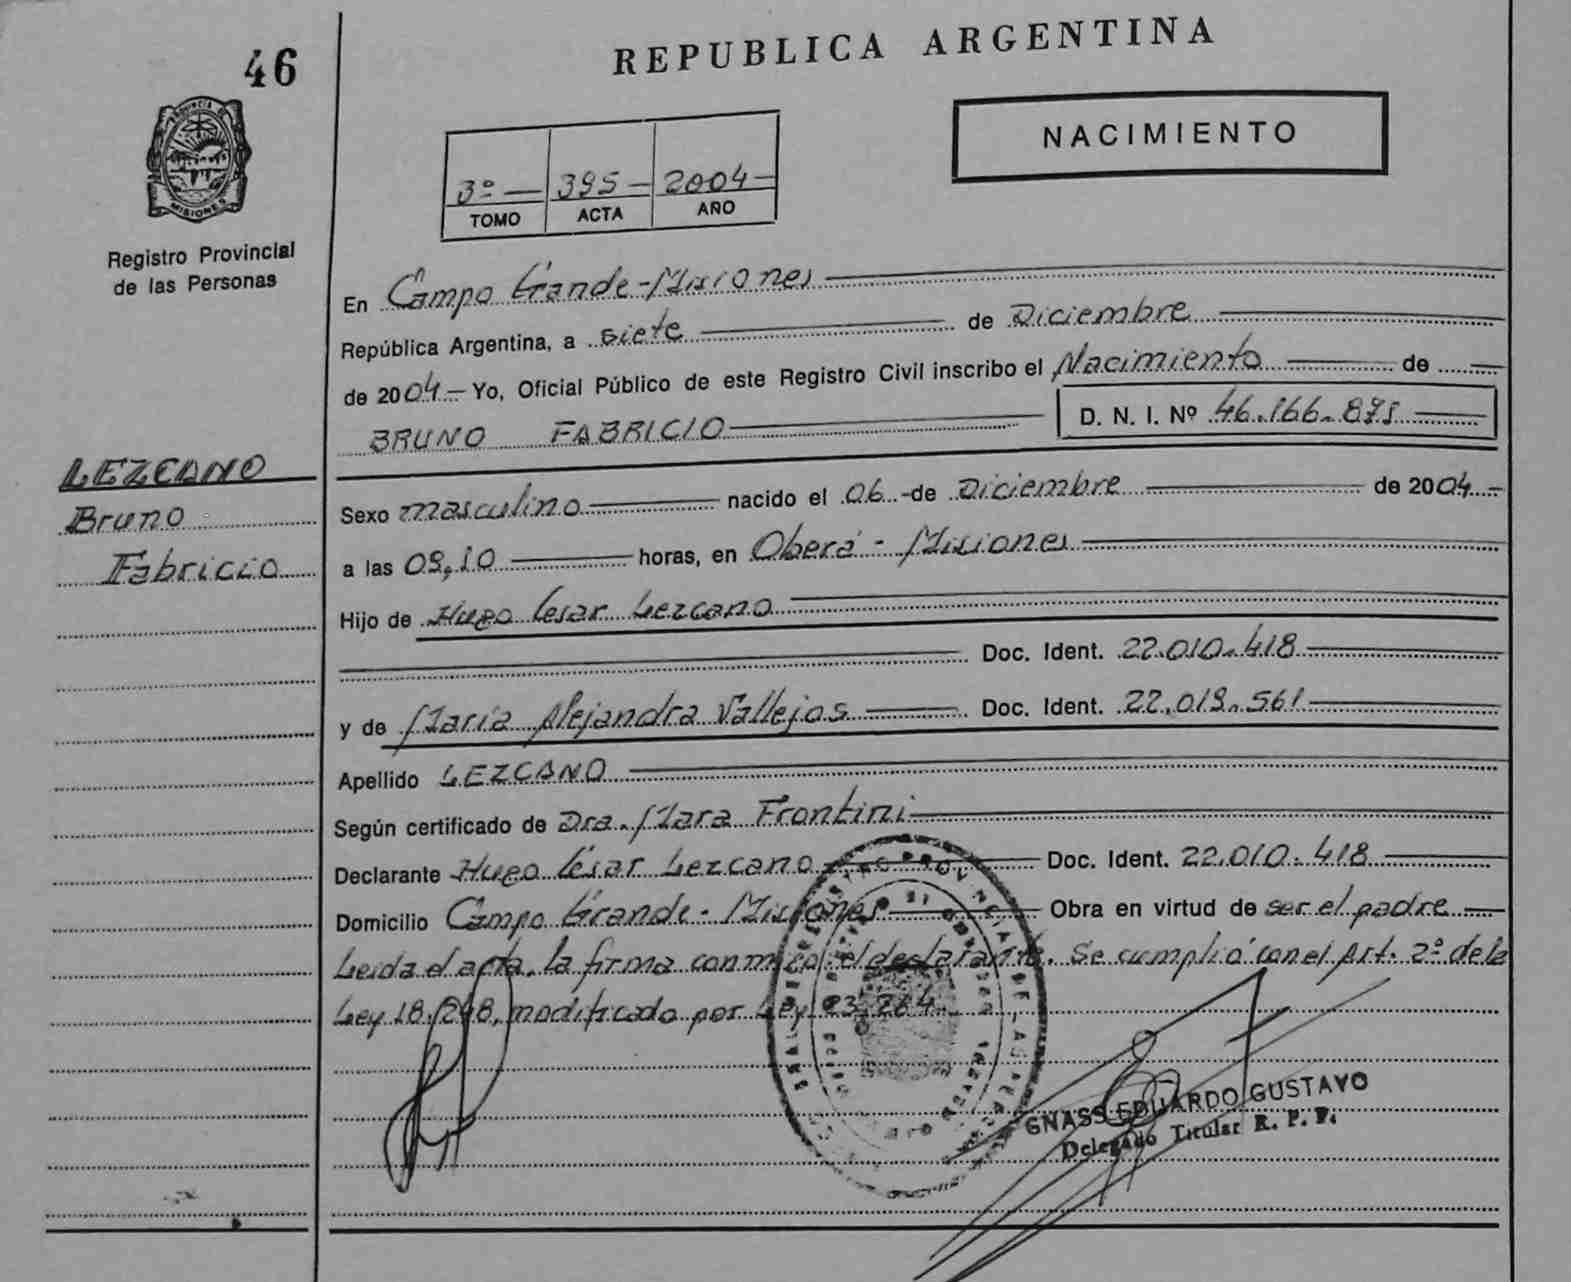 46
REPUBLICA ARGENTINA
NACIMIENTO
3º — 395 — 2004 —
TOMO ACTA AÑO
PROVINCIA DE MISIONES
Registro Provincial
de las Personas
En Campo Grande - Misiones
República Argentina, a siete de Diciembre
de 2004 - Yo, Oficial Público de este Registro Civil inscribo el Nacimiento de
BRUNO FABRICIO D. N. I. Nº 46.166.875
LEZCANO
Bruno
Fabricio
Sexo masculino nacido el 06 - de Diciembre de 2004 -
a las 09,10 horas, en Oberá - Misiones
Hijo de Hugo César Lezcano
Doc. Ident. 22.010.418
y de María Alejandra Vallejos Doc. Ident. 22.019.561
Apellido LEZCANO
Según certificado de Dra. Mara Frontini
Declarante Hugo César Lezcano Doc. Ident. 22.010.418
Domicilio Campo Grande - Misiones Obra en virtud de ser el padre
Leida el acta, la firma conmigo el declarante. Se cumplió con el Art. 2º de la
Ley 18.248, modificado por Ley 23.264.
GNASS EDUARDO GUSTAVO
Delegado Titular R. P. P.